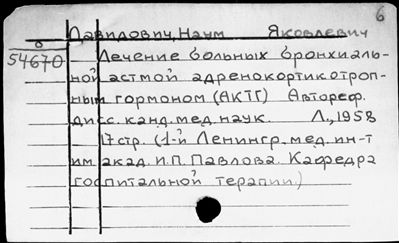 6
Давидович, Наум Яковлевич
54670
Лечение больных бронхиаль-
ной астмой адренокортикотроп-
ным гормоном (АКТГ) Автореф.
дисс. канд. мед. наук. Л., 1958
17 стр. (1-й Ленингр. мед. ин-т
им. акад. И.П. Павлова. Кафедра
госпитальной терапии.)